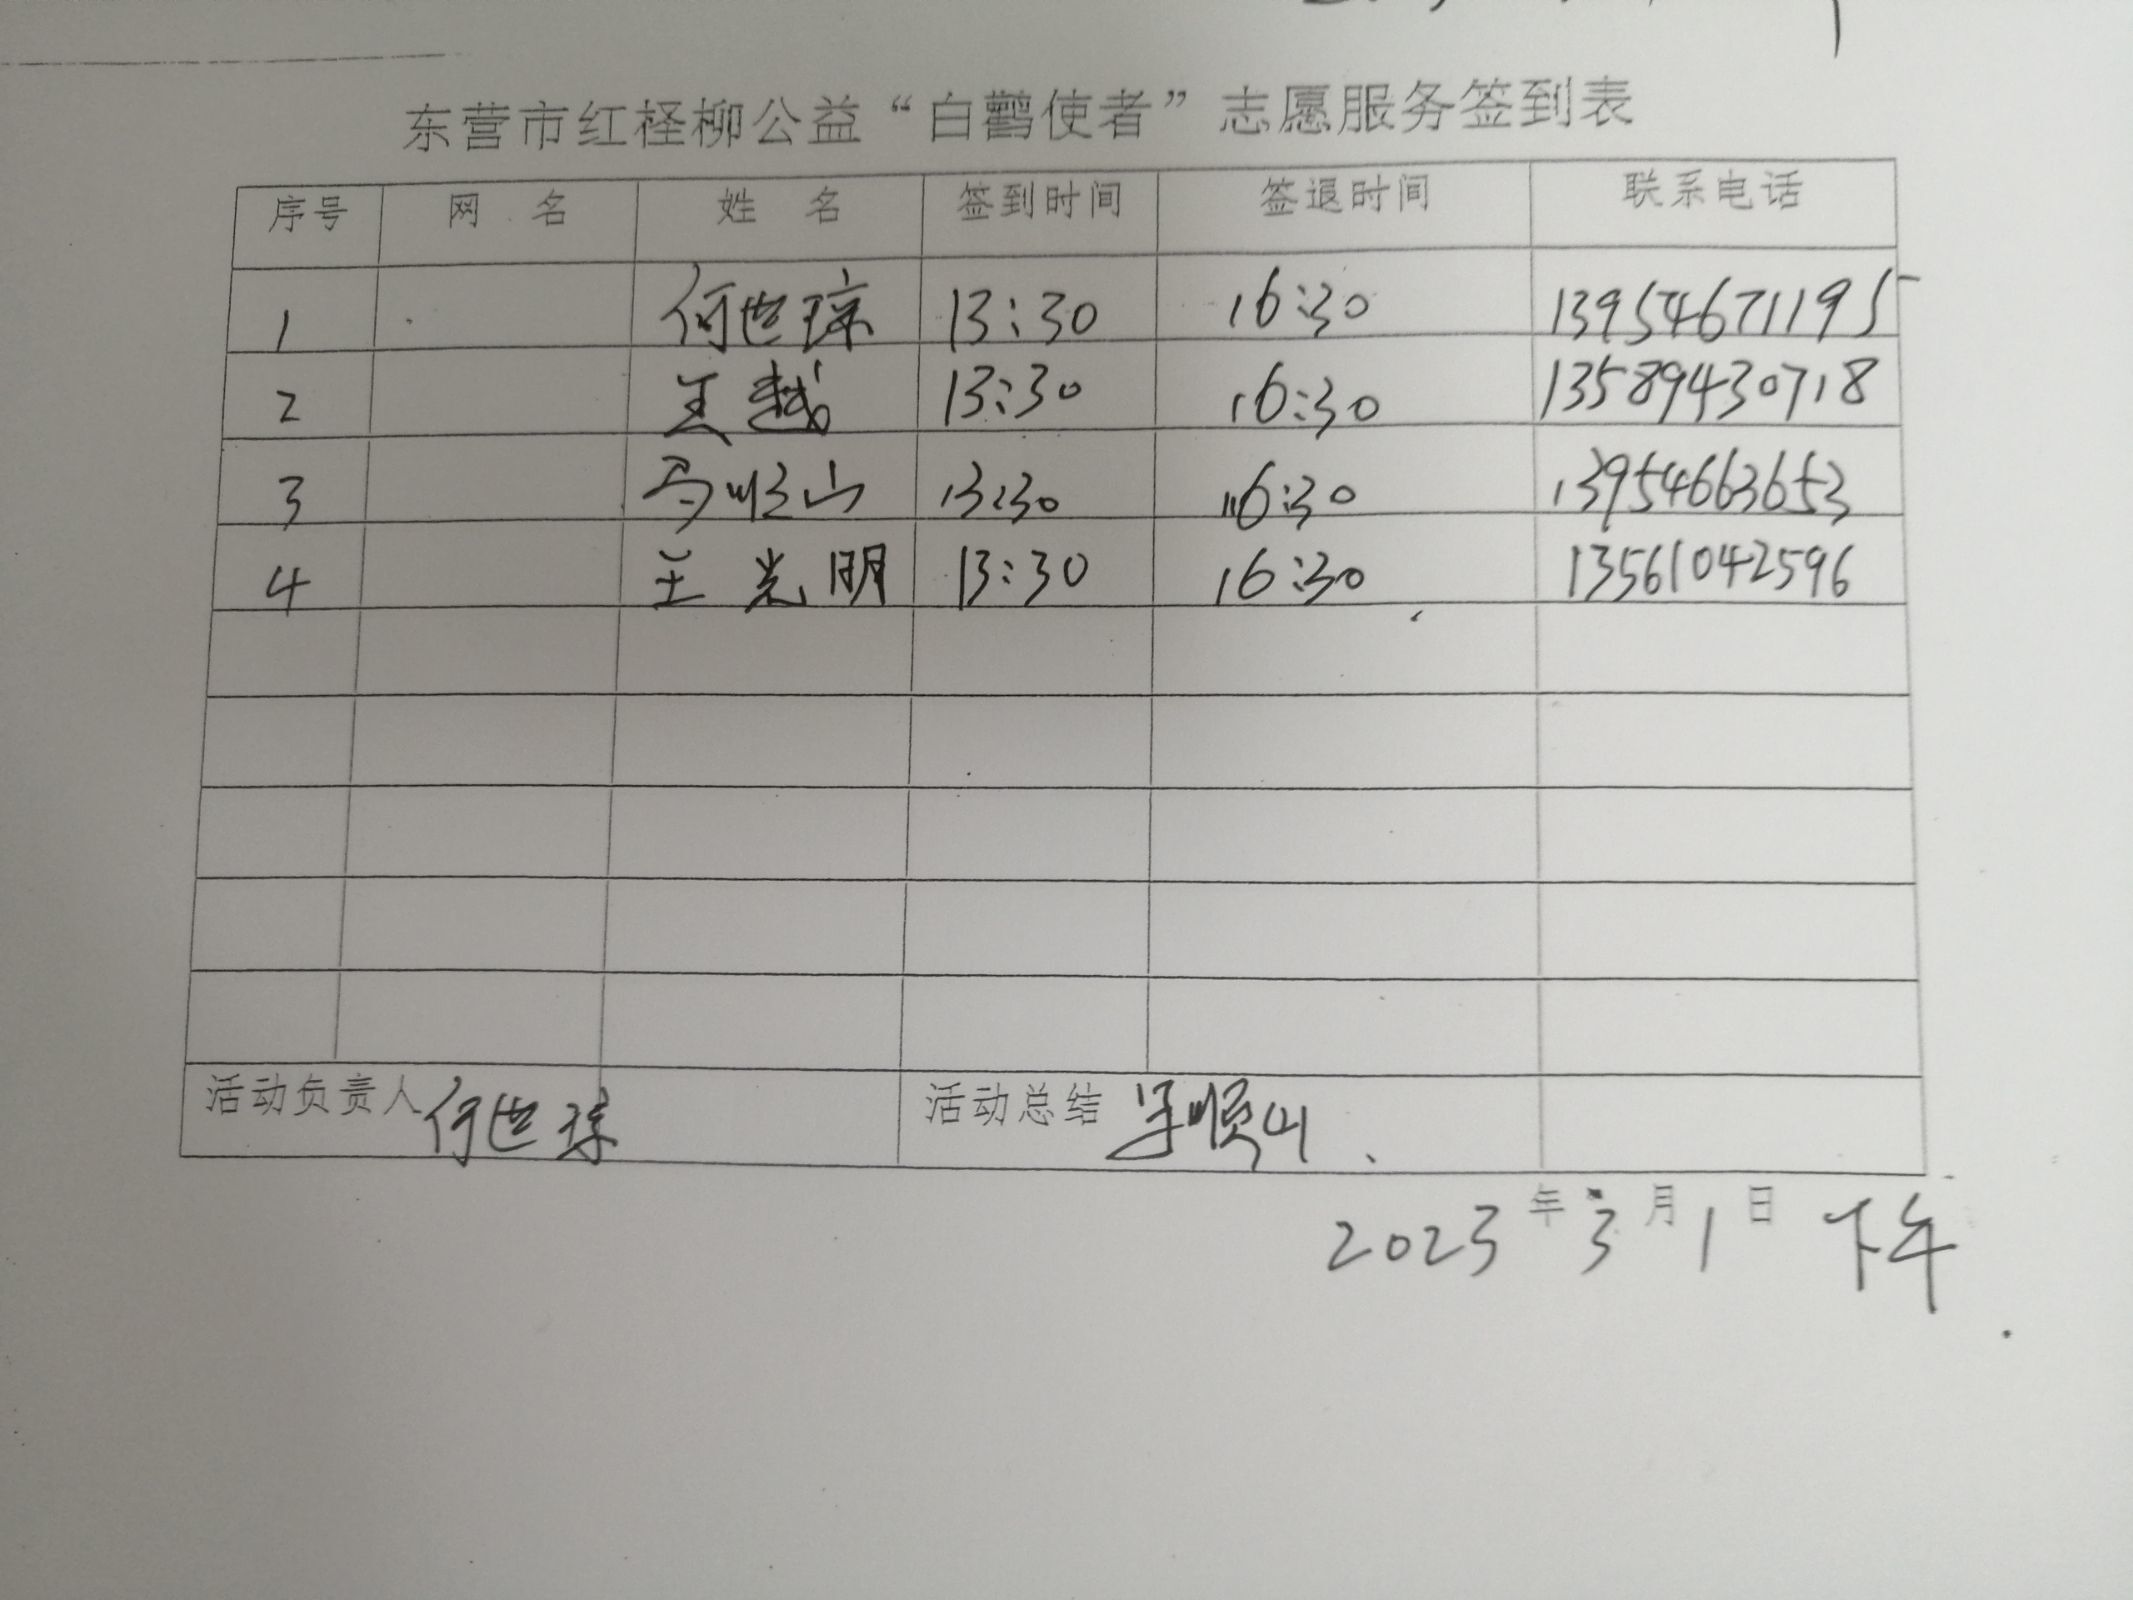 东营市红柽柳公益“白鹳使者”志愿服务签到表
序号 网 名 姓 名 签到时间 签退时间 联系电话
1 何世琼 13:30 16:30 13954671195
2 王越 13:30 16:30 13589430718
3 山 13:30 16:30 13954663653
4 王光明 13:30 16:30 13561042596
活动负责人 何世琼 活动总结 顺山
2023年3月1日 下午